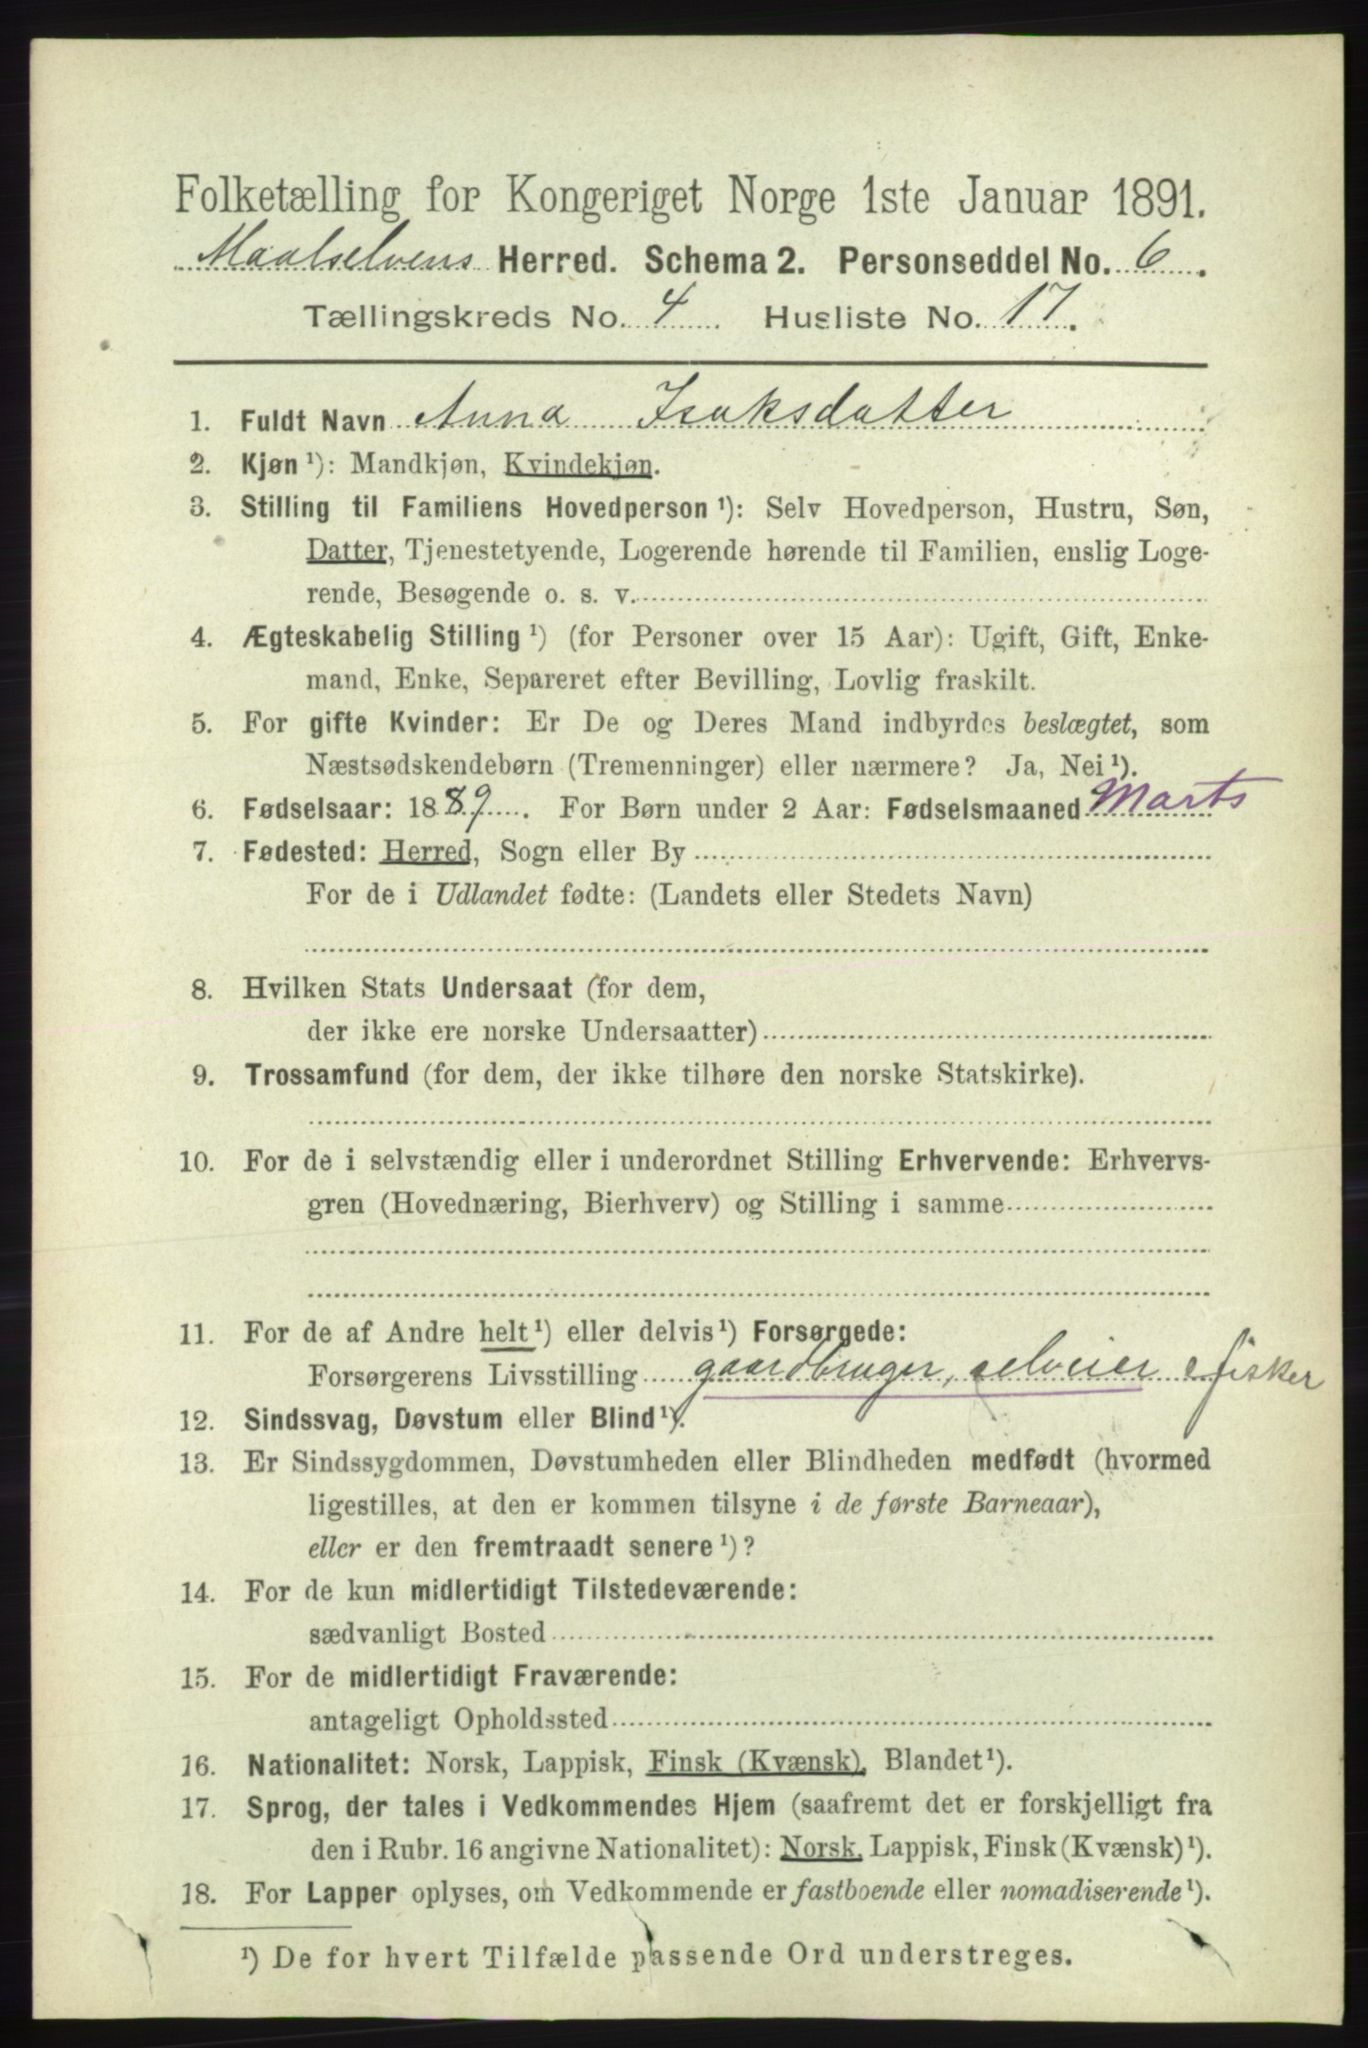 Folketælling for Kongeriget Norge 1ste Januar 1891.
Maalselvens Herred. Schema 2. Personseddel No. 6.
Tællingskreds No. 4 Husliste No. 17.
1. Fuldt Navn Anna Isaksdatter
2. Kjøn ¹): Mandkjøn, Kvindekjøn.
3. Stilling til Familiens Hovedperson ¹): Selv Hovedperson, Hustru, Søn,
Datter, Tjenestetyende, Logerende hørende til Familien, enslig Loge-
rende, Besøgende o. s. v.
4. Ægteskabelig Stilling ¹) (for Personer over 15 Aar): Ugift, Gift, Enke-
mand, Enke, Separeret efter Bevilling, Lovlig fraskilt.
5. For gifte Kvinder: Er De og Deres Mand indbyrdes beslægtet, som
Næstsødskendebørn (Tremenninger) eller nærmere? Ja, Nei ¹).
6. Fødselsaar: 1889. For Børn under 2 Aar: Fødselsmaaned Marts
7. Fødested: Herred, Sogn eller By
For de i Udlandet fødte: (Landets eller Stedets Navn)
8. Hvilken Stats Undersaat (for dem,
der ikke ere norske Undersaatter)
9. Trossamfund (for dem, der ikke tilhøre den norske Statskirke).
10. For de i selvstændig eller i underordnet Stilling Erhvervende: Erhvervs-
gren (Hovednæring, Bierhverv) og Stilling i samme
11. For de af Andre helt ¹) eller delvis ¹) Forsørgede:
Forsørgerens Livsstilling gaardbruger, selveier fisker
12. Sindssvag, Døvstum eller Blind ¹).
13. Er Sindssygdommen, Døvstumheden eller Blindheden medfødt (hvormed
ligestilles, at den er kommen tilsyne i de første Barneaar),
eller er den fremtraadt senere ¹)?
14. For de kun midlertidigt Tilstedeværende:
sædvanligt Bosted
15. For de midlertidigt Fraværende:
antageligt Opholdssted
16. Nationalitet: Norsk, Lappisk, Finsk (Kvænsk), Blandet ¹).
17. Sprog, der tales i Vedkommendes Hjem (saafremt det er forskjelligt fra
den i Rubr. 16 angivne Nationalitet): Norsk, Lappisk, Finsk (Kvænsk) ¹).
18. For Lapper oplyses, om Vedkommende er fastboende eller nomadiserende ¹).
¹) De for hvert Tilfælde passende Ord understreges.